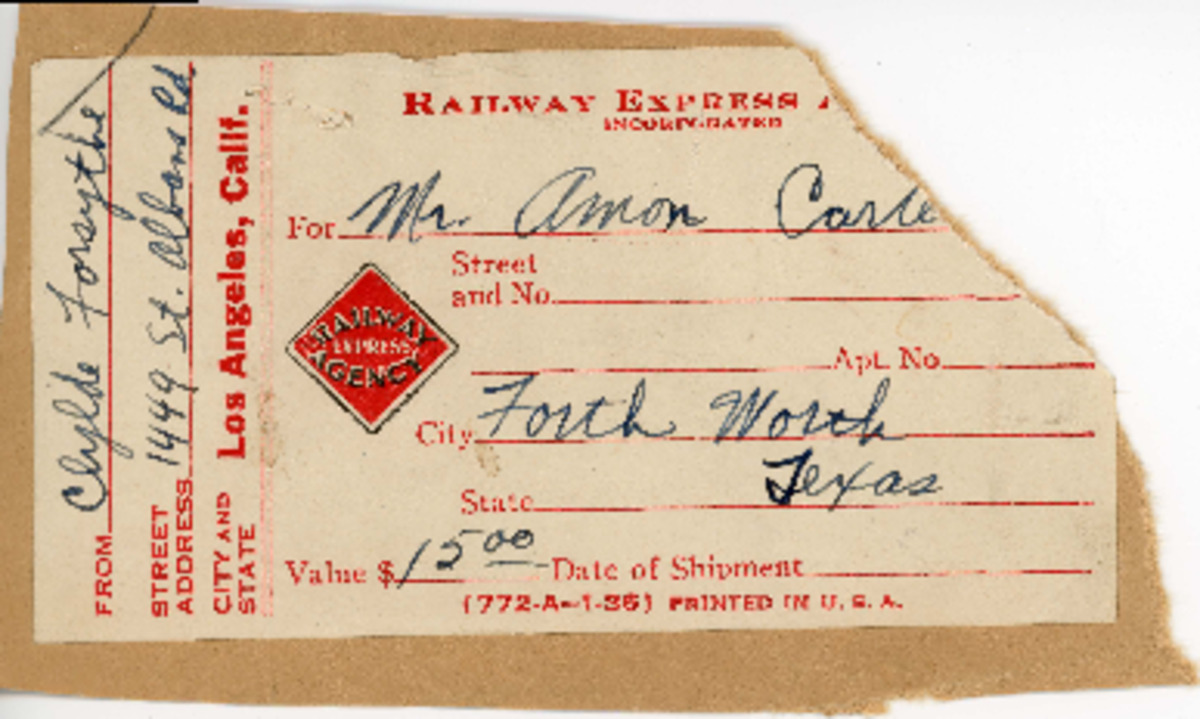 FROM Clyde Forsythe
STREET ADDRESS 1449 St. Albans Rd
CITY AND STATE Los Angeles, Calif.
RAILWAY EXPRESS
INCORPORATED
For Mr. Amon Carte
Street
and No.
RAILWAY
EXPRESS
AGENCY
Apt. No.
City Forth Worth
State Texas
Value $ 15 00 Date of Shipment
(772-A-1-36) PRINTED IN U. S. A.